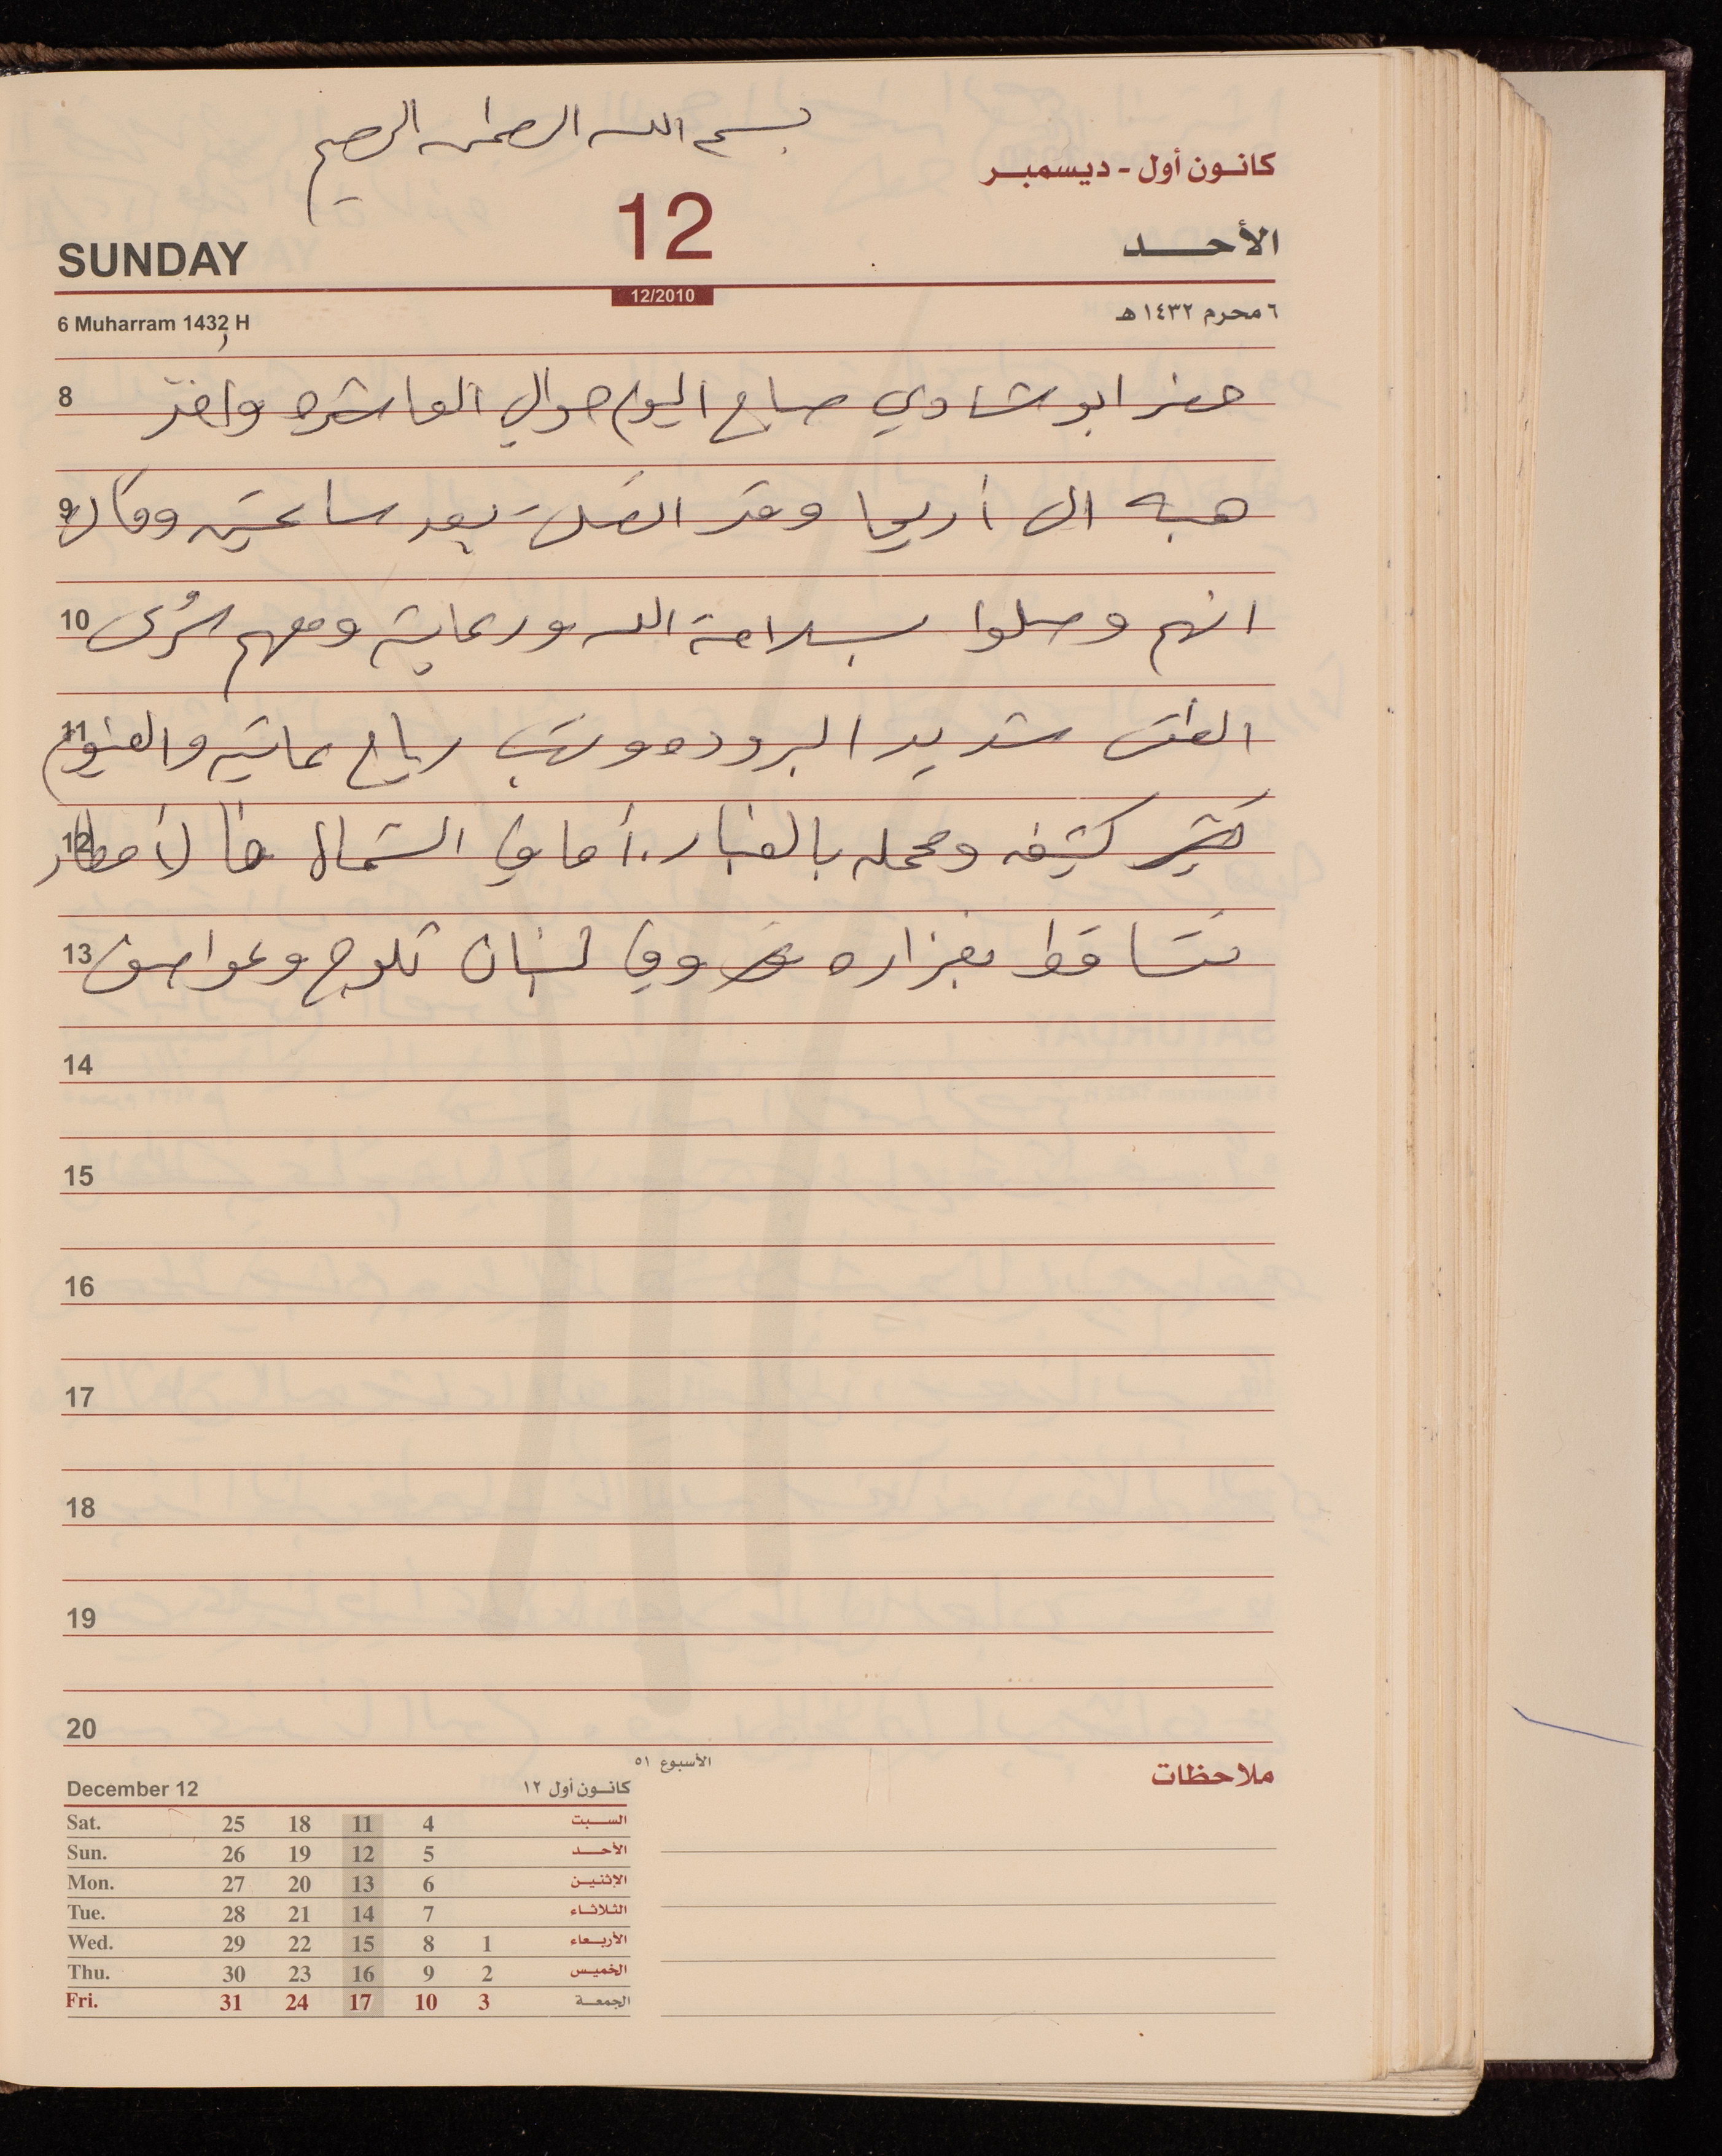 بسم الله الرحمن الرحيم
كانون أول - ديسمبر
12
SUNDAY
الأحد
12/2010
6 Muharram 1432 H
٦ محرم ١٤٣٢ هـ
8 حضر ابو شاوي صباح اليوم حوالي العاشره واخذ
9 هبه الى أريحا وقد اتصلت بعد ساعتين وقال
10 انهم وصلوا بسلامة الله ورعايته ومعهم يسرى
11 الطقس شديد البروده وتهب رياح عاتيه والغيوم
12 كثيفه ومحمله بالغبار. أما في الشمال فالأمطار
13 تتساقط بغزاره وفي لبنان ثلوج وعواصف
14
15
16
17
18
19
20
الأسبوع ٥١
ملاحظات
December 12 كانون أول ١٢
Sat. 25 18 11 4 السبت
Sun. 26 19 12 5 الأحد
Mon. 27 20 13 6 الإثنين
Tue. 28 21 14 7 الثلاثاء
Wed. 29 22 15 8 1 الأربعاء
Thu. 30 23 16 9 2 الخميس
Fri. 31 24 17 10 3 الجمعة